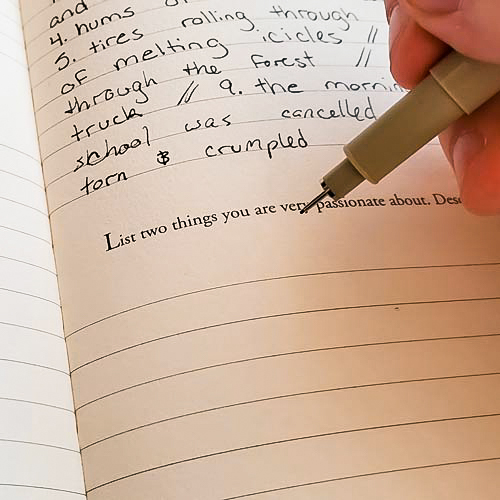 and
4. hums
5. tires rolling through
of melting icicles //
through the forest //
truck // 9. the mornin
school was cancelled
torn & crumpled
List two things you are very passionate about. Desc